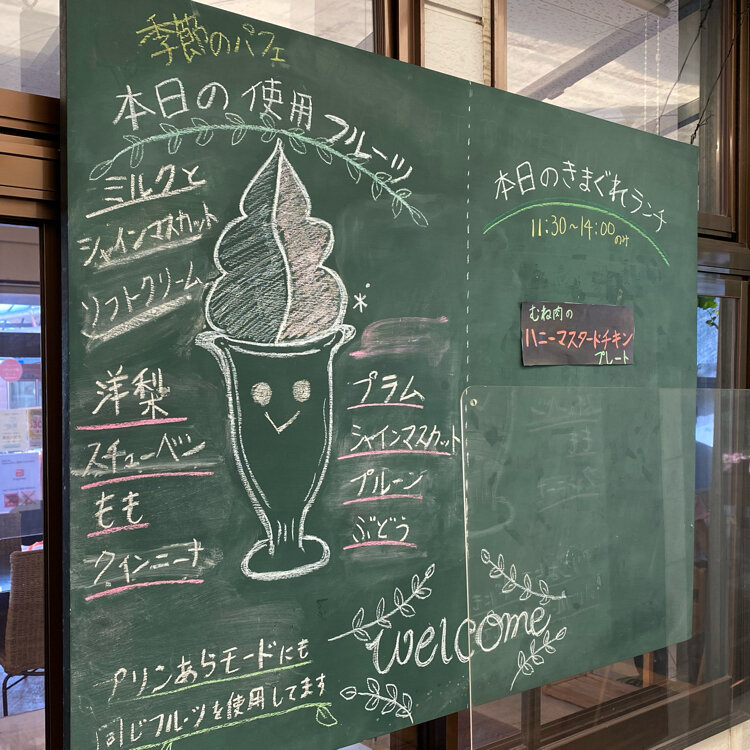 季節のパフェ
本日の使用フルーツ
ミルクと
シャインマスカット
ソフトクリーム
洋梨
スチューベン
もも
クインニーナ
プラム
シャインマスカット
プルーン
ぶどう
プリンあらモードにも
同じフルーツを使用してます
本日のきまぐれランチ
11:30~14:00のみ
むね肉の
ハニーマスタードチキン
プレート
welcome